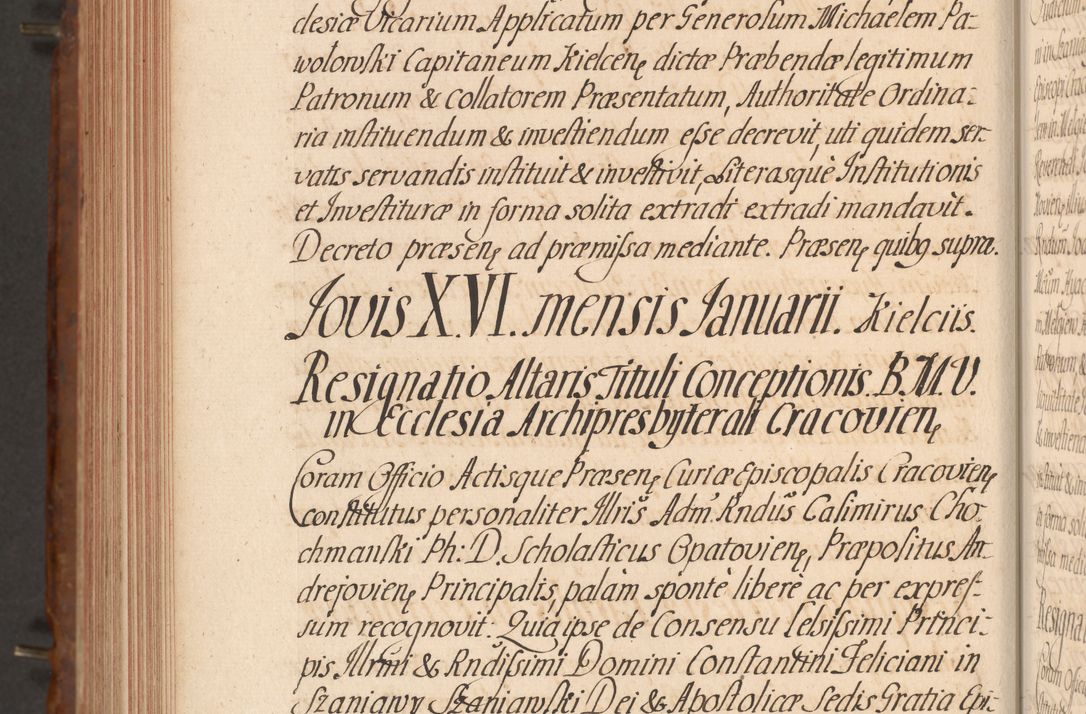 desiæ Vicarium Applicatum per Generosum Michaëlem Pa-
wolowski Capitaneum Kielcenę dictæ Præbendæ legitimum
Patronum & Collatorem Præsentatum, Authoritate Ordina-
ria instituendum & investiendum esse decrevit, uti quidem ser-
vatis servandis instituit & investivit, Literasquè Institutionis
et Investituræ in forma solita extradi extradi mandavit.
Decreto præsenę ad præmissa mediante. Præsenę quibꝰ supra.
Jovis XVI. mensis Januarii. Kielciis.
Resignatio Altaris Tituli Conceptionis B.M.V.
in Ecclesia Archipresbyterali Cracovienę
Coram Officio Actisque Præsenę Curiæ Episcopalis Cracovienę
constitutus personaliter Illris Adm̃ Rndus Casimirus Cho-
chmanski Ph: D. Scholasticus Opatovienę, Præpositus An-
drejovienę Principalis, palàm spontè liberè ac per expres-
sum recognovit: Quia ipse de Consensu Celsissimi Princi-
pis Illrmi & Rndissimi Domini Constantini Feliciani in
Szaniawy Szaniawski Dei & Apostolicæ Sedis Gratia Epi-